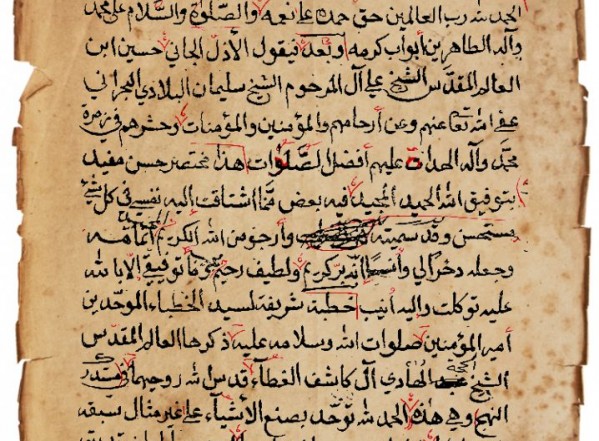 الحمد لله رب العالمين حق حمده على نعمه والصلوة والسلام على محمد
وآله الطاهرين أبواب كرمه وبعد فيقول الأذل الجاني حسين ابن
العالم المقدس الشيخ علي آل المرحوم الشيخ سليمان البلادي البحراني
عفى الله تعالى عنهم وعن أرحامهم والمؤمنين والمؤمنات وحشرهم في زمرة
محمد وآله الهداة عليهم أفضل الصلوات هذا مختصر حسن مفيد
بتوفيق الله الحميد المجيد فيه بعض مما اشتاقت اليه نفسي في كل شيء
مستحسن وقد سميته وأرجو من الله الكريم اتمامه
وجعله ذخرا لي انه بر كريم ولطيف رحيم وما توفيقي الا بالله
عليه توكلت واليه أنيب خطبة شريفة لسيد الخطباء الموحدين
أمير المؤمنين صلوات الله وسلامه عليه ذكرها العالم المقدس
الشيخ الهادي آل كاشف الغطاء قدس الله روحيهما في مستدرك
النهج وهي هذه الحمد لله توحد بصنع الأشياء على غير مثال سبقه